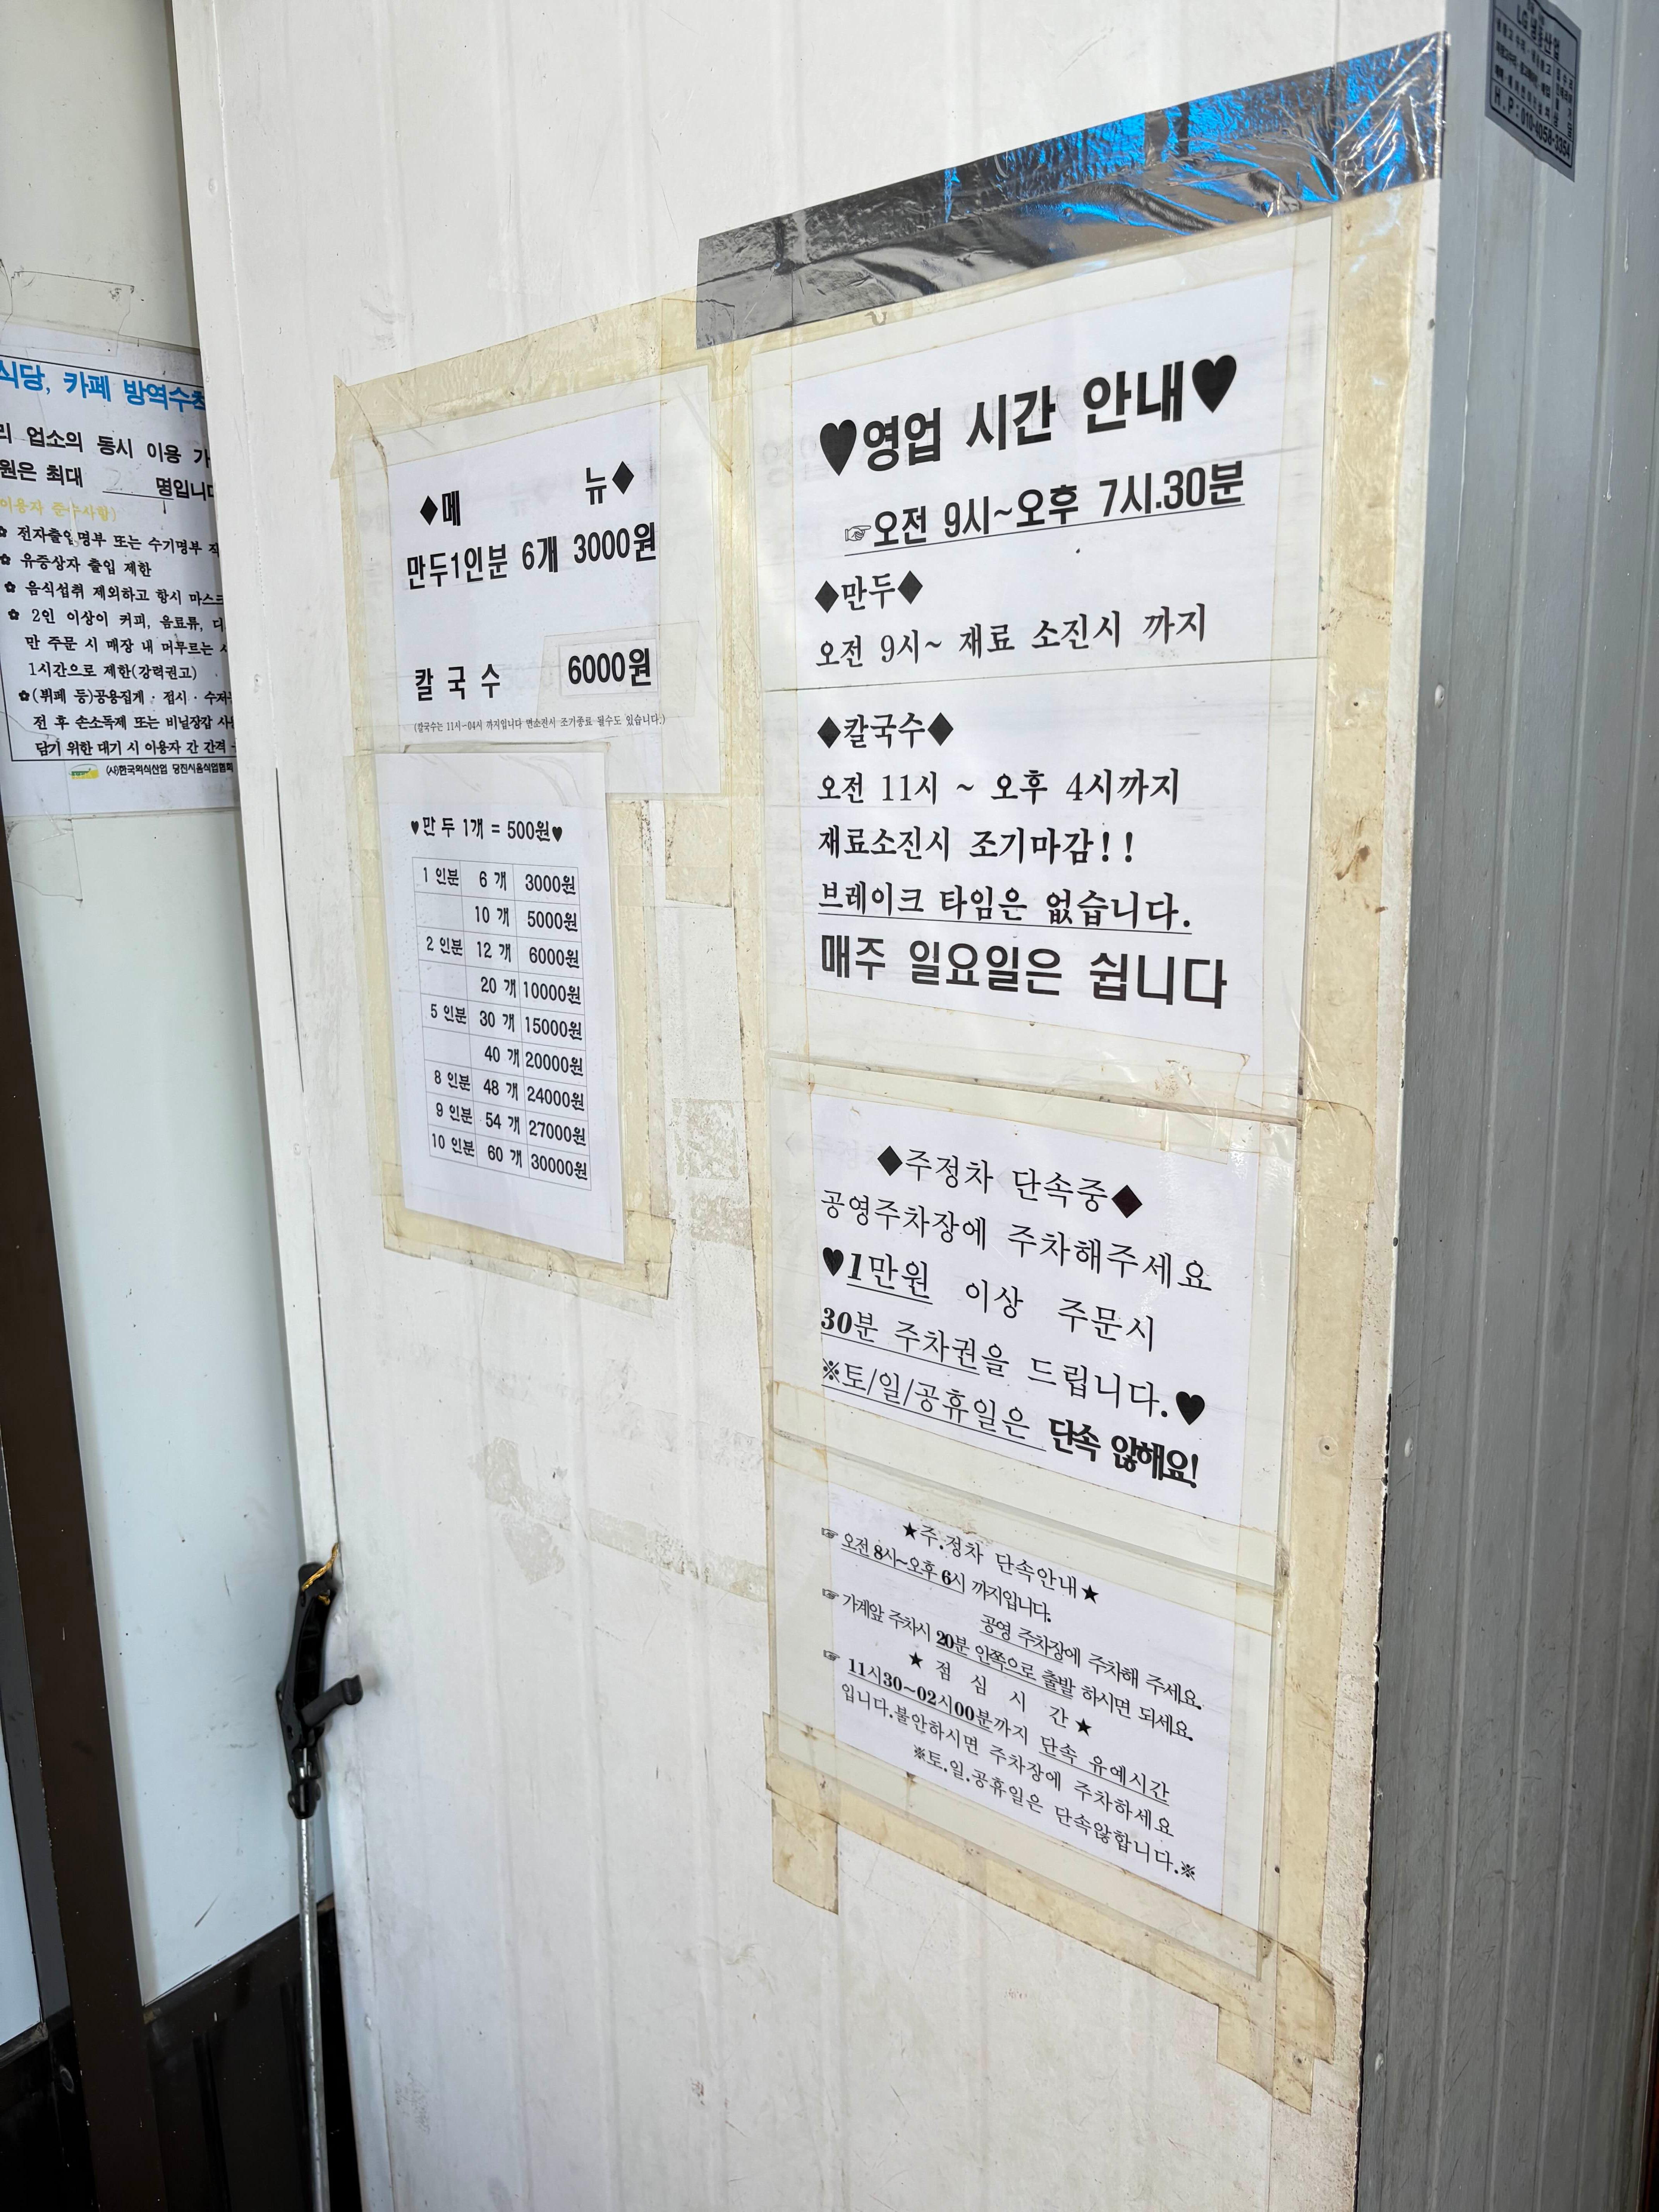 식당, 카페 방역수칙
리 업소의 동시 이용 가
원은 최대 명입니다
이용자 준수사항)
✿ 전자출입명부 또는 수기명부 작
✿ 유증상자 출입 제한
✿ 음식섭취 제외하고 항시 마스크
✿ 2인 이상이 커피, 음료류, 디
만 주문 시 매장 내 머무르는 시
1시간으로 제한(강력권고)
✿(뷔페 등)공용집게 · 접시 · 수저
전 후 손소독제 또는 비닐장갑 사용
담기 위한 대기 시 이용자 간 간격
(사)한국외식산업 당진시음식업협회
◆메 뉴◆
만두1인분 6개 3000원
칼 국 수 6000원
(칼국수는 11시-04시 까지입니다 면소진시 조기종료 될수도 있습니다.)
♥만 두 1개 = 500원♥
1 인분 6 개 3000원
10 개 5000원
2 인분 12 개 6000원
20 개 10000원
5 인분 30 개 15000원
40 개 20000원
8 인분 48 개 24000원
9 인분 54 개 27000원
10 인분 60 개 30000원
♥영업 시간 안내♥
☞오전 9시~오후 7시.30분
◆만두◆
오전 9시~ 재료 소진시 까지
◆칼국수◆
오전 11시 ~ 오후 4시까지
재료소진시 조기마감!!
브레이크 타임은 없습니다.
매주 일요일은 쉽니다
◆주정차 단속중◆
공영주차장에 주차해주세요
♥1만원 이상 주문시
30분 주차권을 드립니다.♥
※토/일/공휴일은 단속 않해요!
★주.정차 단속안내★
☞ 오전 8시~오후 6시 까지입니다.
공영 주차장에 주차해 주세요.
☞ 가계앞 주차시 20분 안쪽으로 출발 하시면 되세요.
★ 점 심 시 간 ★
☞ 11시30~02시00분까지 단속 유예시간
입니다.불안하시면 주차장에 주차하세요
※토.일.공휴일은 단속않합니다.※
LG 냉동산업
H.P:010-4058-3354